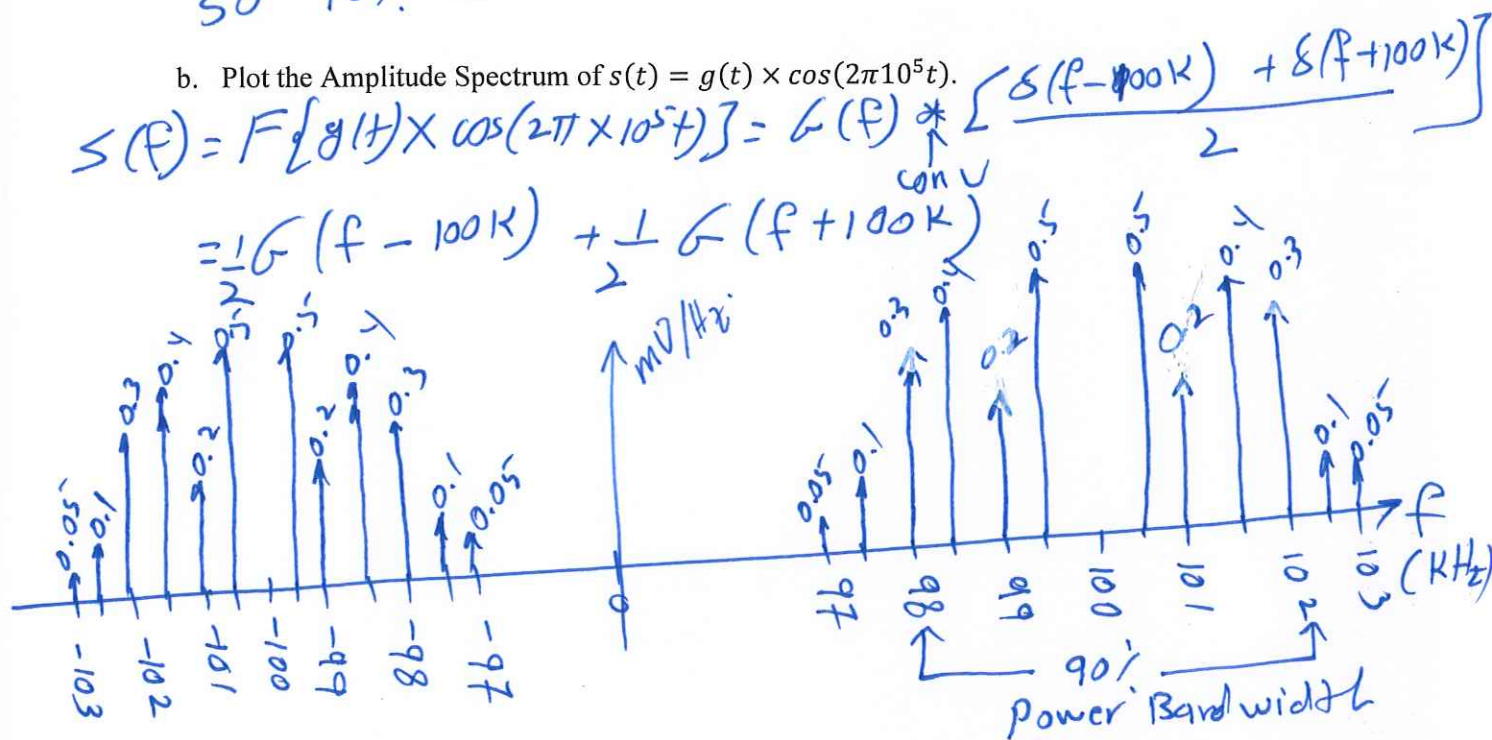 b. Plot the Amplitude Spectrum of s(t) = g(t) × cos(2π10⁵t).
S(f) = F{g(t) × cos(2π × 10⁵t)} = G(f) * [δ(f-100K) + δ(f+100K)]
2
conv
= 1/2 G(f - 100K) + 1/2 G(f + 100K)
mV/Hz
0.05 0.1 0.3 0.4 0.2 0.5 0.5 0.2 0.4 0.3 0.1 0.05
0.05 0.1 0.3 0.4 0.2 0.5 0.5 0.2 0.4 0.3 0.1 0.05
f
(KHz)
-103 -102 -101 -100 -99 -98 -97 0 97 98 99 100 101 102 103
90%
Power Bandwidth